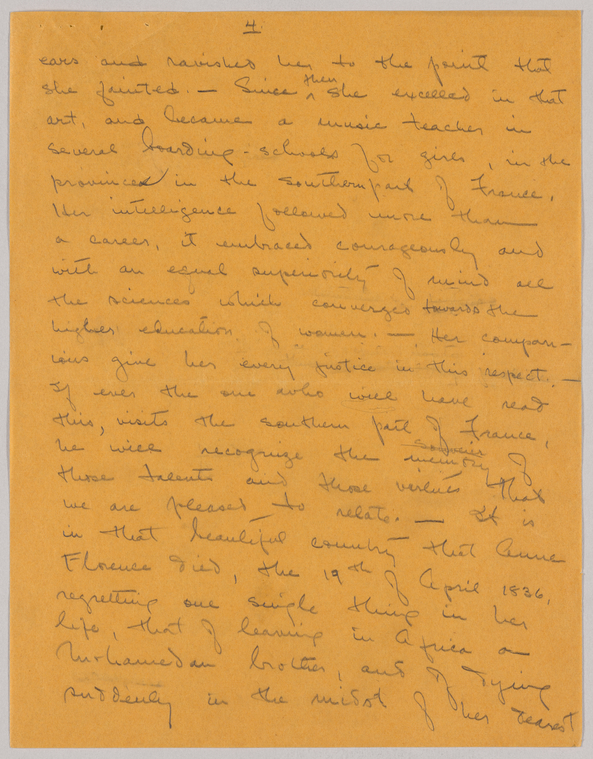 4
ears and ravished her to the point that
she fainted. — Since then she excelled in that
art, and became a music teacher in
several boarding-schools for girls, in the
provinces in the southern part of France.
Her intelligence followed more than
a career, it embraced courageously and
with an equal superiority of mind all
the sciences which converged towards the
higher education of women. — Her compan-
ions give her every justice in this respect. —
If ever the one who will have read
this, visits the southern part of France,
he will recognize the memory souvenir of
those talents and those virtues that
we are pleased to relate. — It is
in that beautiful country that Anne
Florence died, the 19th of April 1836,
regretting one single thing in her
life, that of leaving in Africa a
Mohamedan brother, and of dying
suddenly in the midst of her dearest